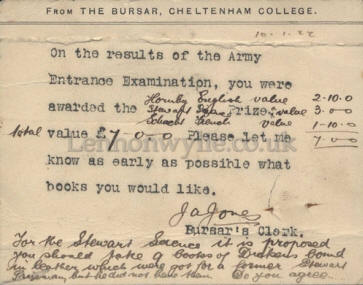 FROM THE BURSAR, CHELTENHAM COLLEGE.
10.1.22
On the results of the Army
Entrance Examination, you were
Hornby English value 2-10-0
awarded the Stewart Science Prize, value 3.00
French value 1-10-0
total value £7 0-0 Please let me 7-00
know as early as possible what
books you would like.
J a Jones
Bursar's Clerk.
For the Stewart Science it is proposed
you should take 9 books of Dickens bound
in leather which were got for a former Stewart
but he did not have them. Do you agree.
Lennonwylie.co.uk